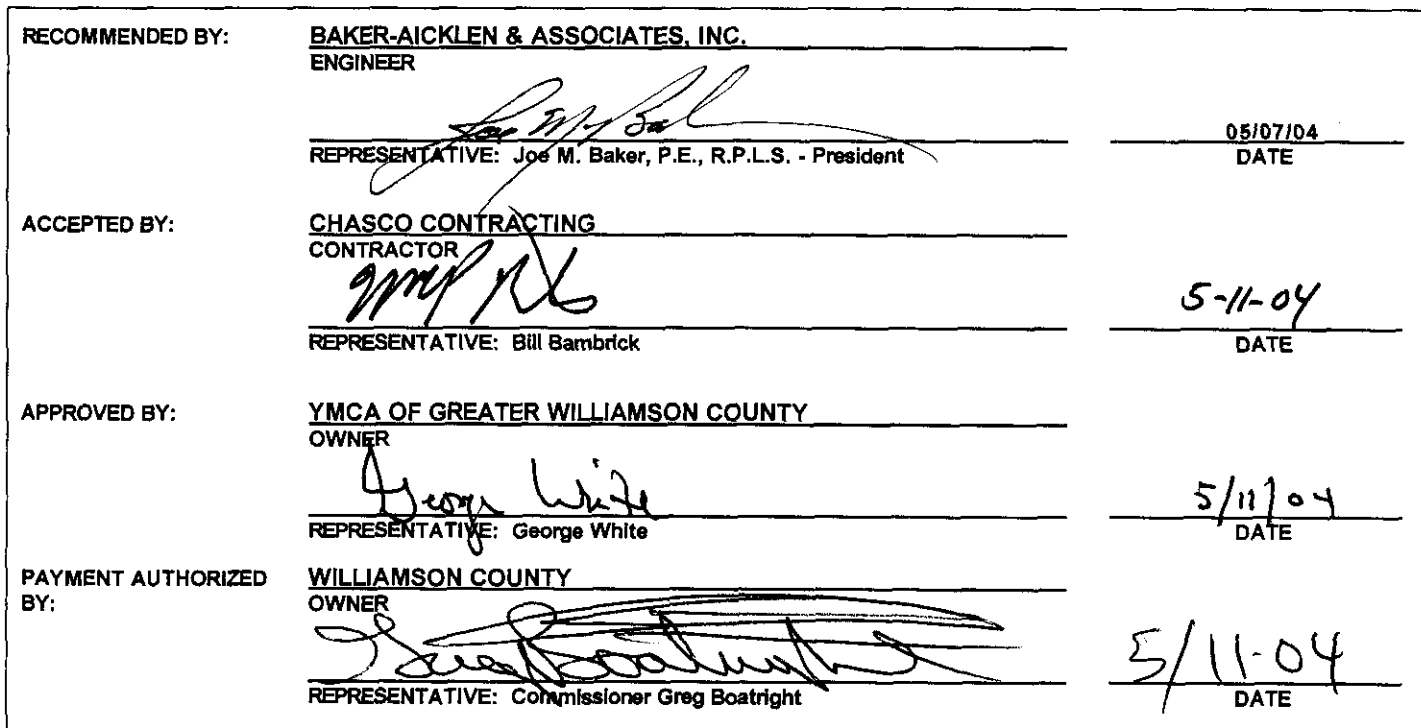 RECOMMENDED BY: BAKER-AICKLEN & ASSOCIATES, INC.
ENGINEER
05/07/04
REPRESENTATIVE: Joe M. Baker, P.E., R.P.L.S. - President DATE
ACCEPTED BY: CHASCO CONTRACTING
CONTRACTOR
5-11-04
REPRESENTATIVE: Bill Bambrick DATE
APPROVED BY: YMCA OF GREATER WILLIAMSON COUNTY
OWNER
George White 5/11/04
REPRESENTATIVE: George White DATE
PAYMENT AUTHORIZED WILLIAMSON COUNTY
BY: OWNER
Greg Boatright 5/11-04
REPRESENTATIVE: Commissioner Greg Boatright DATE